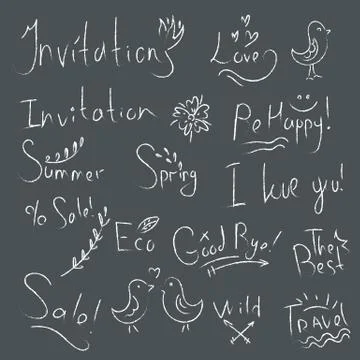 Invitations
Love
Invitation
Be Happy!
Summer
Spring
I love you!
% Sale!
Eco
Good Bye!
The
Best
Sale!
Wild
Travel